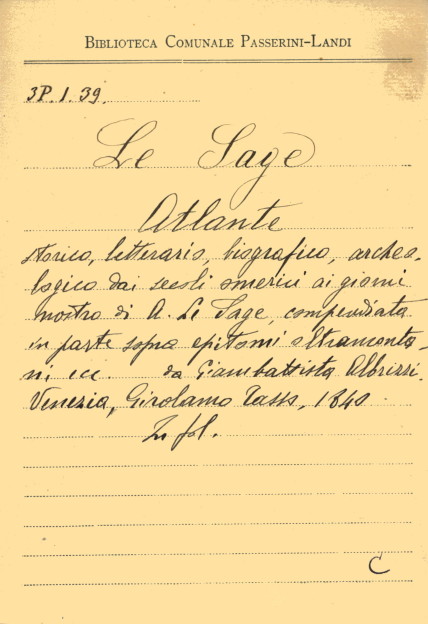 BIBLIOTECA COMUNALE PASSERINI-LANDI
3P.I.39.
Le Sage
Atlante
storico, letterario, biografico, archeo-
logico dai secoli omerici ai giorni
nostro di A. Le Sage, compendiata
in parte sopra epitomi oltramonta-
ni ecc. da Giambattista Albrizzi.
Venezia, Girolamo Tasso, 1840.
In fol.
C